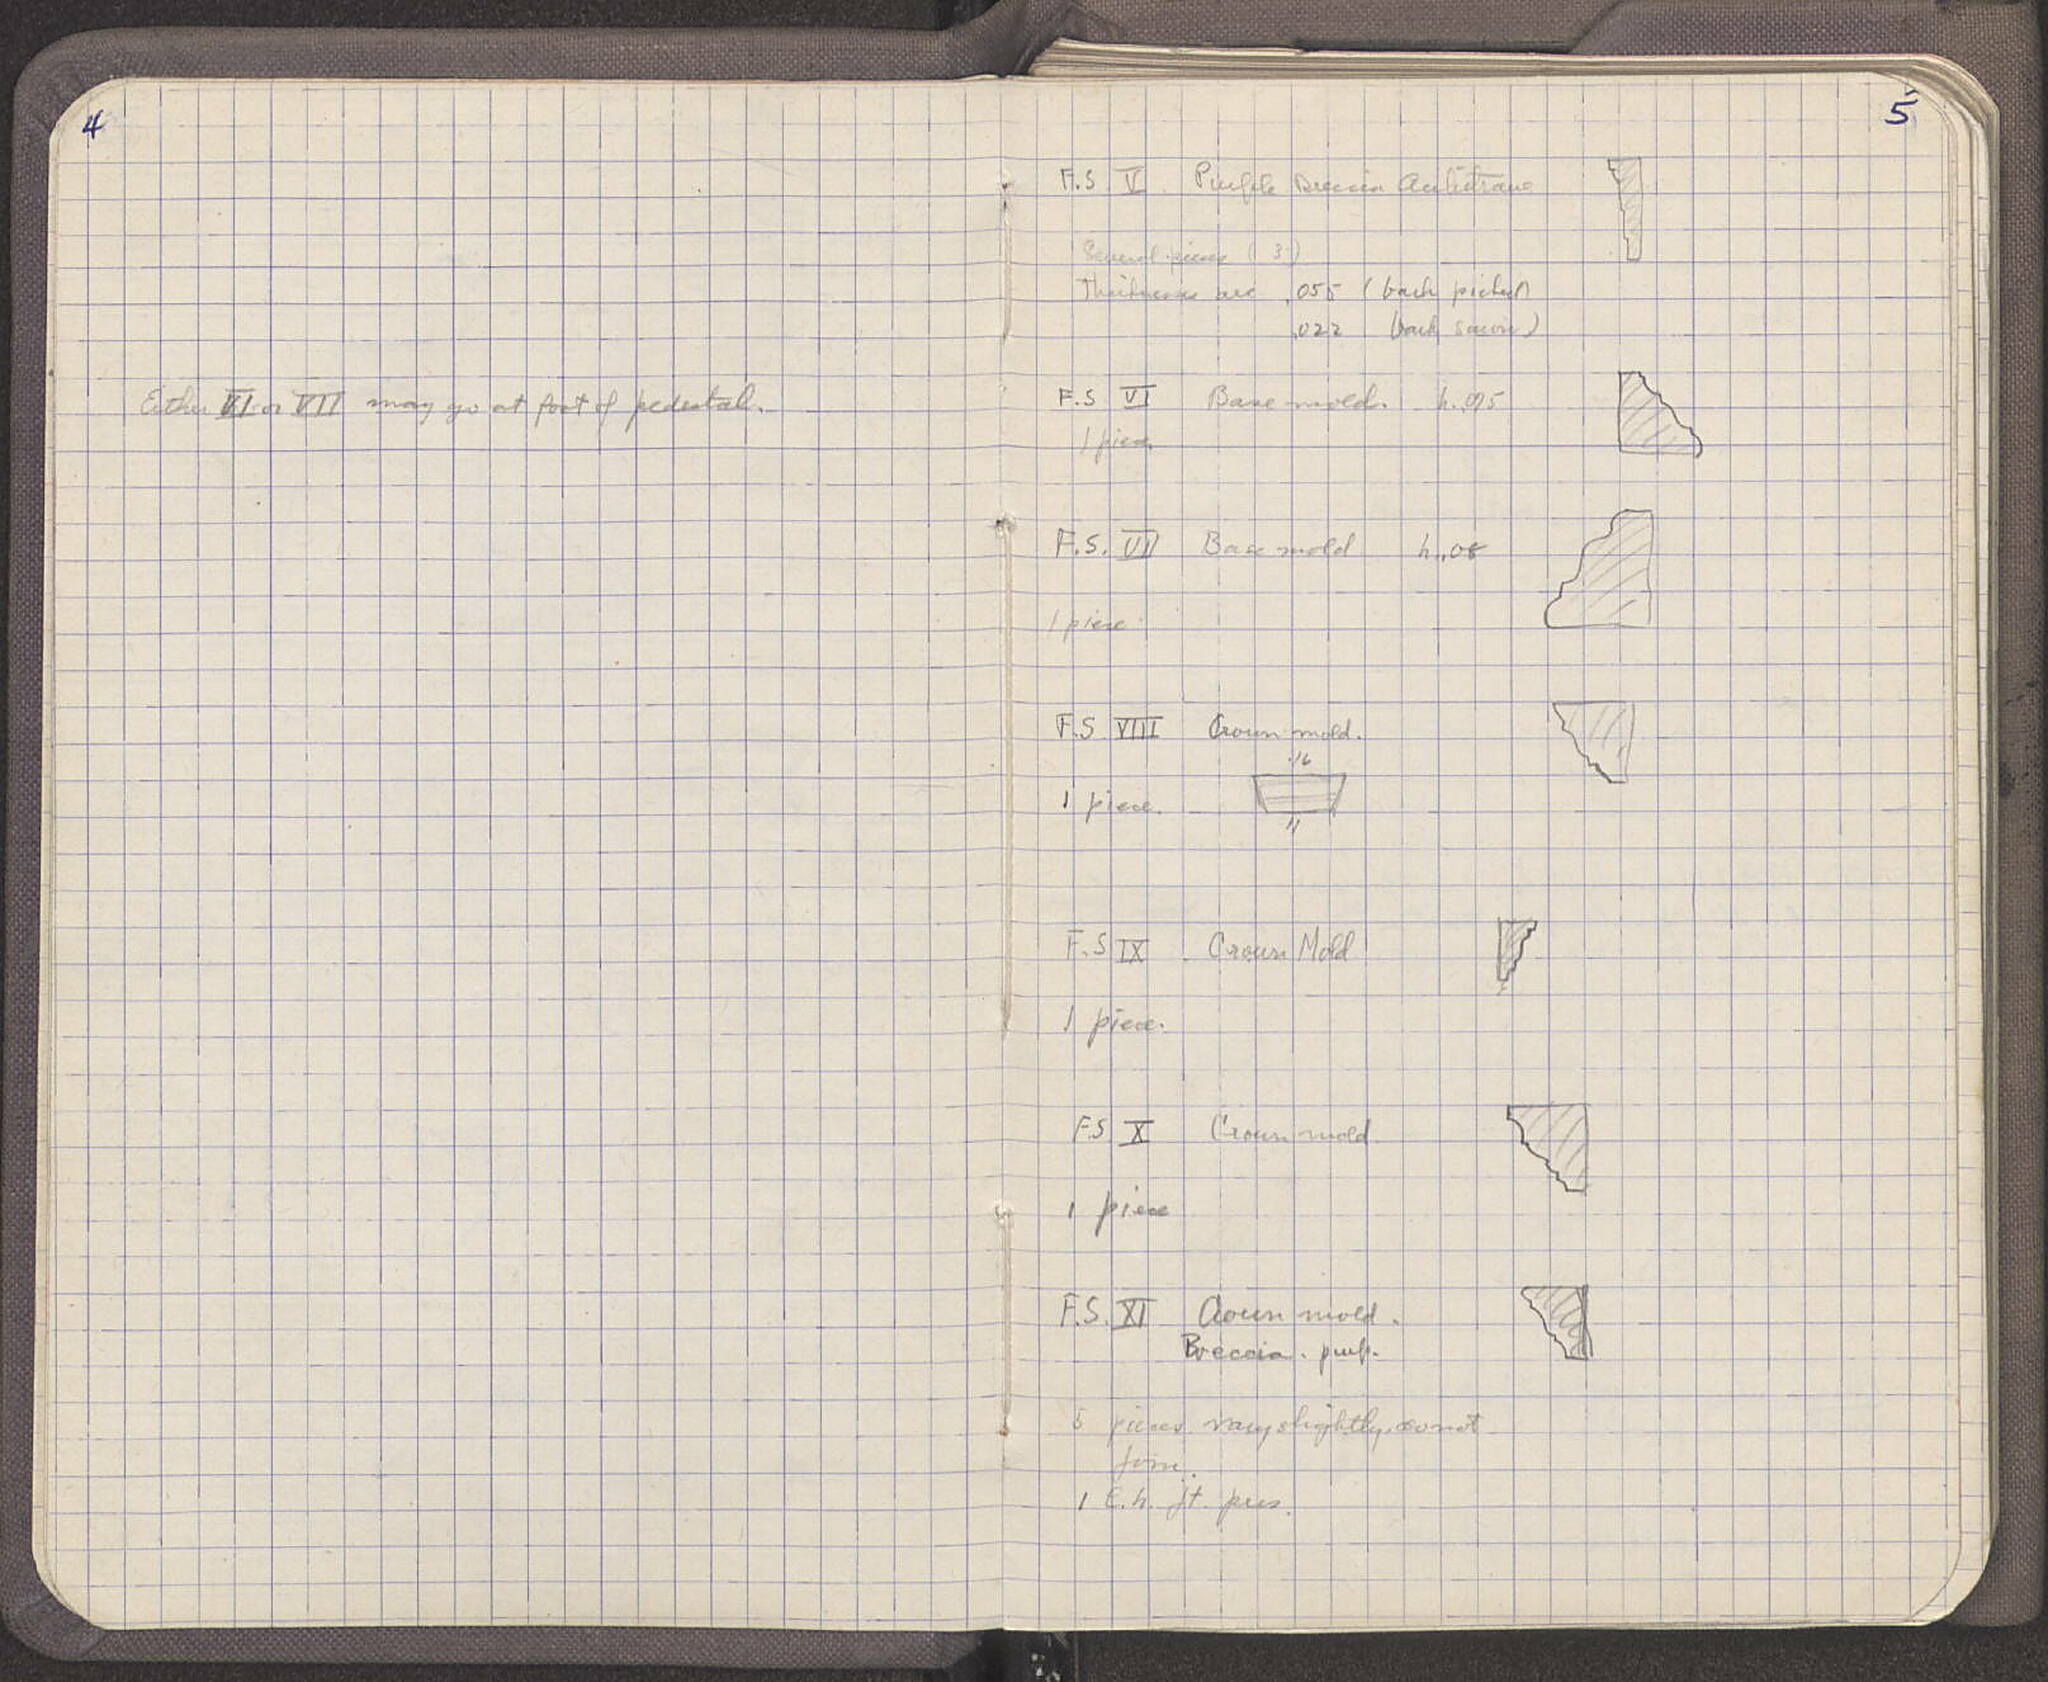 4
Either VI or VII may go at foot of pedestal.
5
F.S. V. Purple Breccia Architrave
Several pieces (3)
Thicknesses are .055 (back picked)
.022 (back sawn)
F.S VI Base mold. h. .095
1 piece
F.S. VII Base mold h. .08
1 piece
F.S VIII Crown mold.
.16
1 piece.
11
F.S IX Crown Mold
1 piece.
F.S. X Crown mold
1 piece
F.S. XI Crown mold.
Breccia. purp.
5 pieces vary slightly, do not
join.
1 E. h. jt. pres.